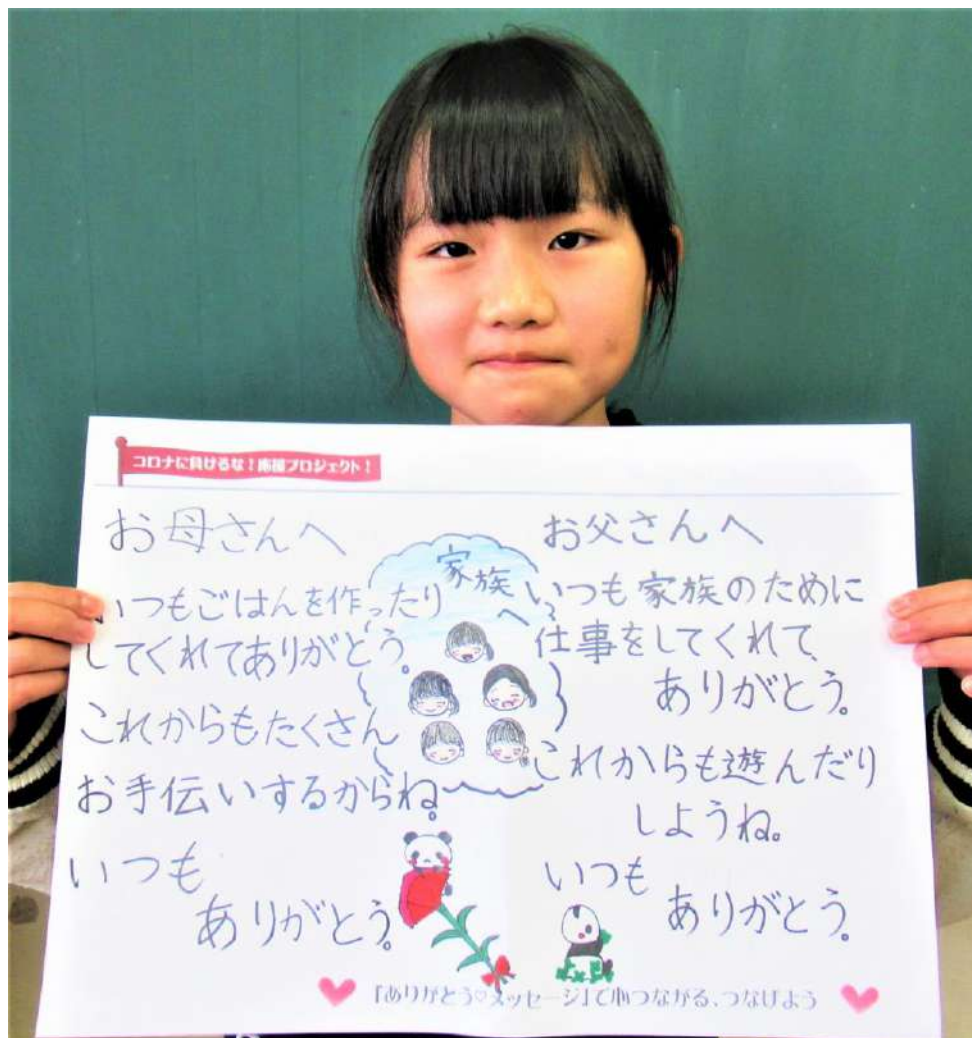 コロナに負けるな！応援プロジェクト！
お母さんへ
いつもごはんを作ったり
してくれてありがとう。
これからもたくさん
お手伝いするからね。
いつも
ありがとう。
家族
へ
お父さんへ
いつも家族のために
仕事をしてくれて、
ありがとう。
これからも遊んだり
しようね。
いつも
ありがとう。
「ありがとう♡メッセージ」で心つながる、つなげよう